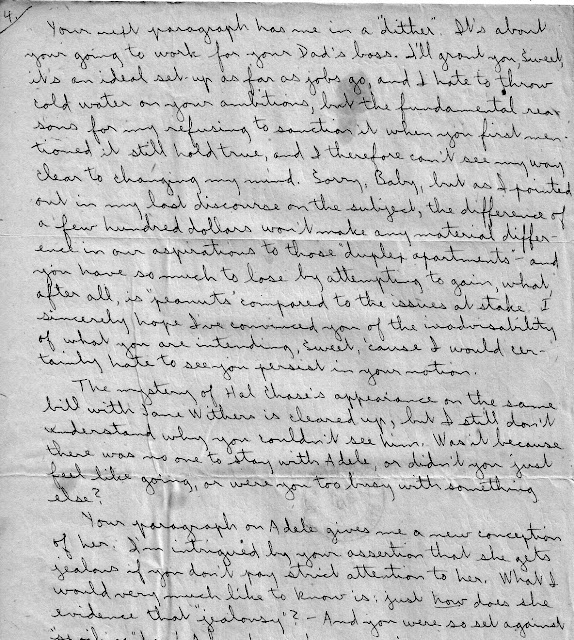 4.
Your next paragraph has me in a "dither". It's about
your going to work for your Dad's boss. I'll grant you, Sweet,
it's an ideal set-up as far as jobs go, and I hate to throw
cold water on your ambitions, but the fundamental rea-
sons for my refusing to sanction it when you first men-
tioned it still hold true, and I therefore can't see my way
clear to changing my mind. Sorry, Baby, but as I pointed
out in my last discourse on the subject, the difference of
a few hundred dollars won't make any material differ-
ence in our aspirations to those "duplex apartments" - and
you have so much to lose by attempting to gain, what,
after all, is "peanuts" compared to the issues at stake. I
sincerely hope I've convinced you of the inadvisability
of what you are intending, Sweet, 'cause I would cer-
tainly hate to see you persist in your notion.
The mystery of Hal Chase's appearance on the same
bill with Jane Withers is cleared up, but I still don't
understand why you couldn't see him. Was it because
there was no one to stay with Adele, or didn't you just
feel like going, or were you too busy with something
else?
Your paragraph on Adele gives me a new conception
of her. I'm intrigued by your assertion that she gets
jealous if you don't pay strict attention to her. What I
would very much like to know is: just how does she
evidence that "jealousy"? - And you were so set against